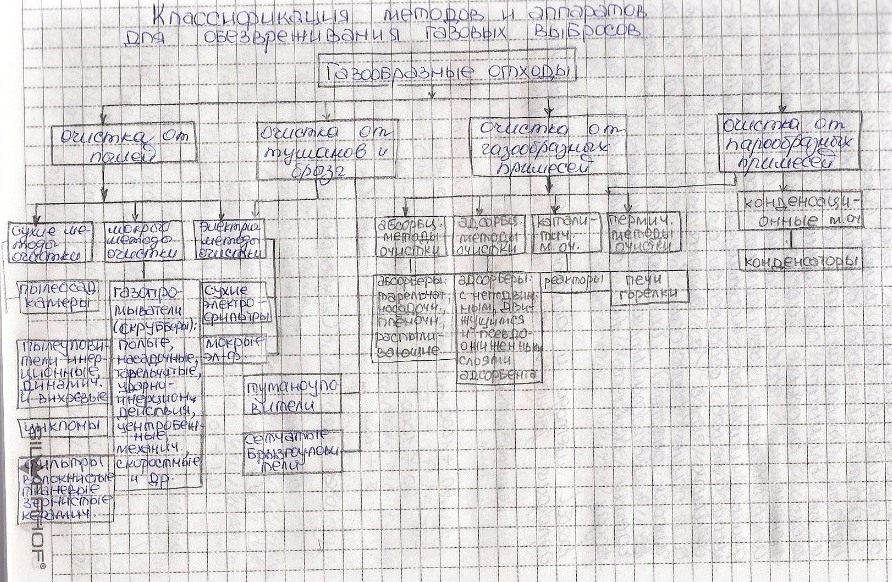 Классификация методов и аппаратов
для обезвреживания газовых выбросов
Газообразные отходы
очистка от
пылей
очистка от
туманов и
брызг
очистка от
газообразных
примесей
очистка от
парообразных
примесей
сухие ме-
тоды
очистки
мокрые
методы
очистки
электрич.
методы
очистки
абсорбц.
методы
очистки
адсорбц.
методы
очистки
катали-
тич.
м. оч.
термич.
методы
очистки
конденсаци-
онные м.оч
пылеосад.
камеры
пылеулови-
тели инер-
ционные,
динамич.
и вихревые
циклоны
фильтры
волокнистые
тканевые
зернистые
керамич.
газопро-
мыватели
(скрубберы):
полые,
насадочные,
тарельчатые,
ударно-
инерцион.
действия,
центробеж-
ные,
механич.
скоростные
и др.
сухие
электро-
фильтры
мокрые
эл.ф.
туманоуло-
вители
сетчатые
брызгоулови-
тели
абсорберы:
тарельчат.
насадочн.
пленочн.
распыли-
вающие
адсорберы:
с неподвиж-
ным, дви-
жущимся
и псевдо-
ожиженным
слоями
адсорбента
реакторы
печи
горелки
конденсаторы
HOF®